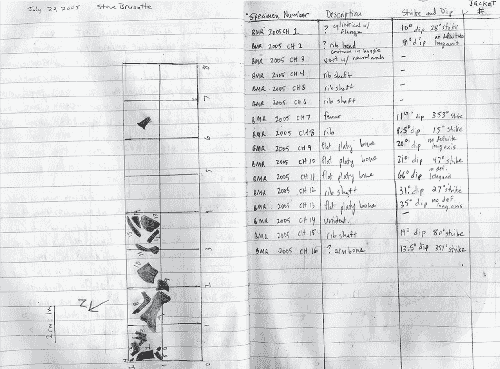 July 22, 2005 Steve Brusatte
Specimen Number Description Strike and Dip Jacket #
BMR 2005 CH 1 ? cylindrical w/ flanges 10° dip 28° strike
BMR 2005 CH 2 ? rib head 9° dip no definite long axis
BMR 2005 CH 3 vert w/ neural arch –
BMR 2005 CH 4 rib shaft –
BMR 2005 CH 5 rib shaft –
BMR 2005 CH 6 rib shaft –
BMR 2005 CH 7 femur 353° strike
BMR 2005 CH 8 rib 8.5° dip 15° strike
BMR 2005 CH 9 flat platy bone 20° dip no definite long axis
BMR 2005 CH 10 flat platy bone 21° dip 47° strike
BMR 2005 CH 11 flat platy bone 66° dip no def. long axis
BMR 2005 CH 12 rib shaft 31° dip 27° strike
BMR 2005 CH 13 flat platy bone 35° dip no def long axis
BMR 2005 CH 14 unident. –
BMR 2005 CH 15 rib shafts 19° dip 80° strike
BMR 2005 CH 16 ? arm bone 13.5° Dip 351° strike
8
7
6
5
4
3
2
1
0
N